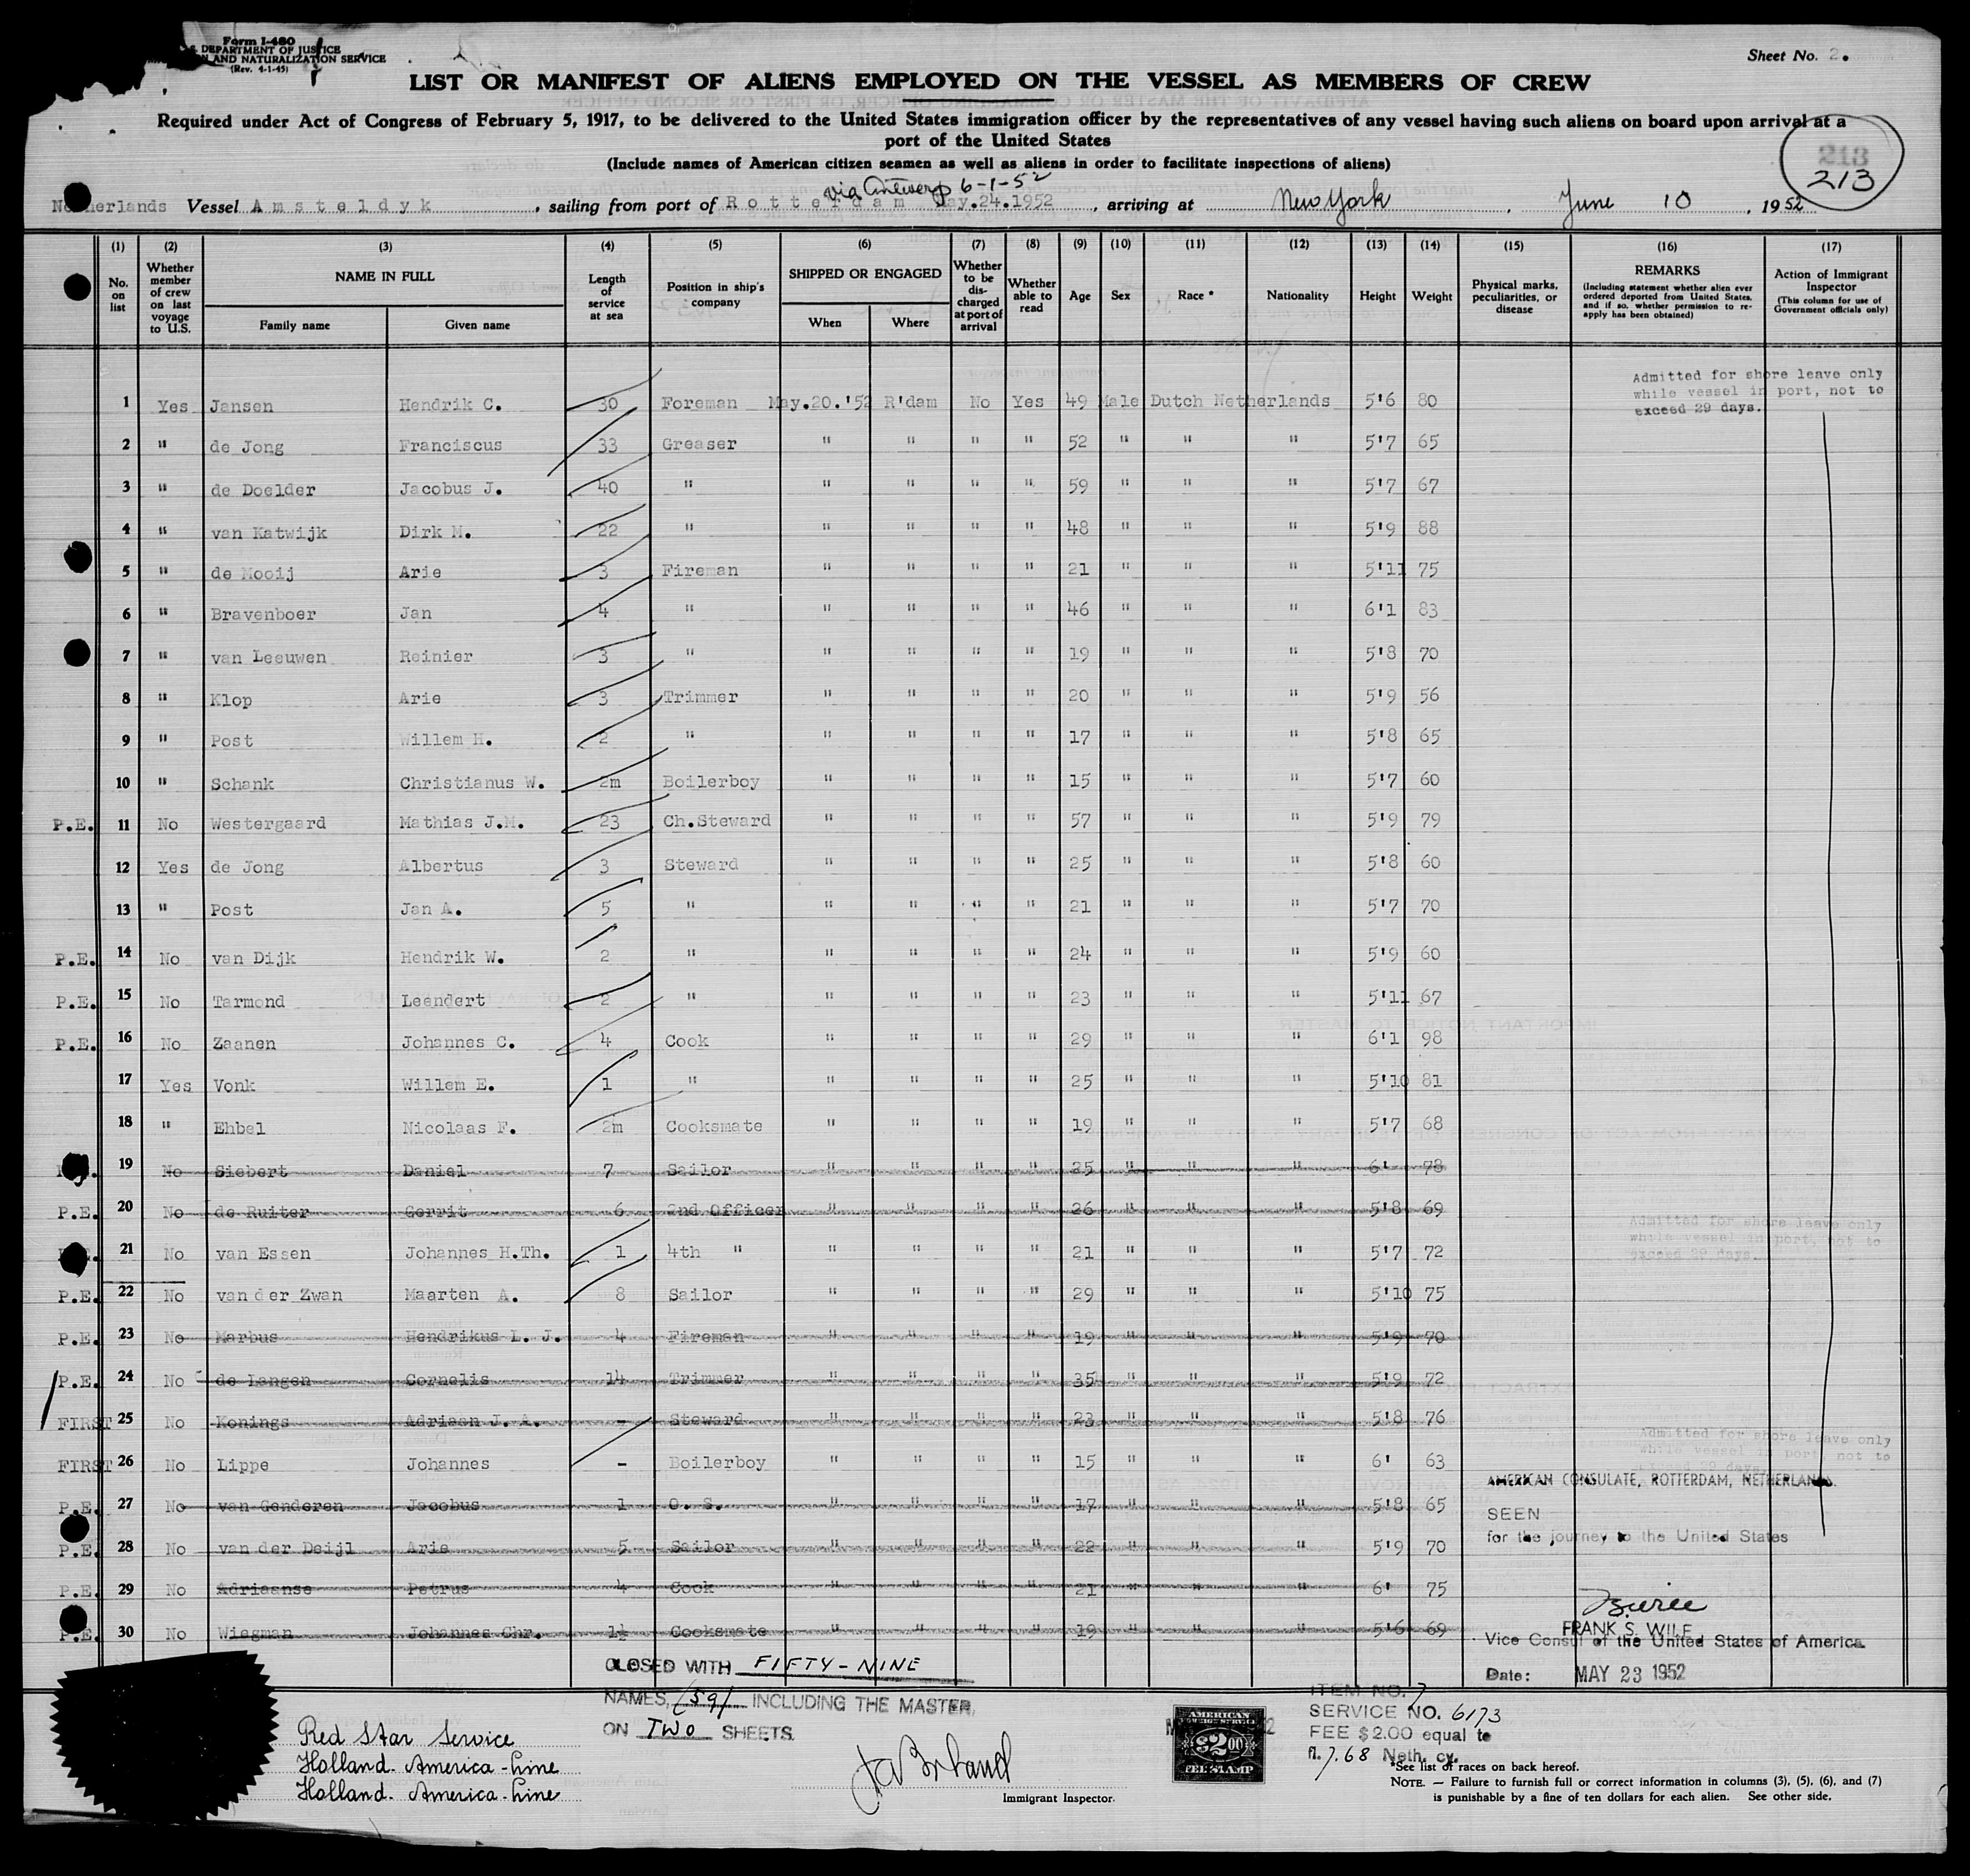 Form I-480
DEPARTMENT OF JUSTICE
AND NATURALIZATION SERVICE
(Rev. 4-1-45)
Sheet No. 2.
LIST OR MANIFEST OF ALIENS EMPLOYED ON THE VESSEL AS MEMBERS OF CREW
Required under Act of Congress of February 5, 1917, to be delivered to the United States immigration officer by the representatives of any vessel having such aliens on board upon arrival at a
port of the United States
(Include names of American citizen seamen as well as aliens in order to facilitate inspections of aliens)
213
213
via Antwerp 6-1-52
Netherlands Vessel Amsteldyk, sailing from port of Rotterdam May.24.1952, arriving at New York, June 10, 1952
(1) (2) (3) (4) (5) (6) (7) (8) (9) (10) (11) (12) (13) (14) (15) (16) (17)
No. on list
Whether member of crew on last voyage to U.S.
NAME IN FULL
Family name Given name
Length of service at sea
Position in ship's company
SHIPPED OR ENGAGED
When Where
Whether to be discharged at port of arrival
Whether able to read
Age Sex Race * Nationality Height Weight
Physical marks, peculiarities, or disease
REMARKS
(Including statement whether alien ever ordered deported from United States, and if so, whether permission to re-apply has been obtained)
Action of Immigrant Inspector
(This column for use of Government officials only)
Admitted for shore leave only
while vessel in port, not to
exceed 29 days.
1 Yes Jansen Hendrik C. 30 Foreman May.20.'52 R'dam No Yes 49 Male Dutch Netherlands 5'6 80
2 " de Jong Franciscus 33 Greaser " " " " 52 " " " 5'7 65
3 " de Doelder Jacobus J. 40 " " " " " 59 " " " 5'7 67
4 " van Katwijk Dirk M. 22 " " " " " 48 " " " 5'9 88
5 " de Mooij Arie 3 Fireman " " " " 21 " " " 5'11 75
6 " Bravenboer Jan 4 " " " " " 46 " " " 6'1 83
7 " van Leeuwen Reinier 3 " " " " " 19 " " " 5'8 70
8 " Klop Arie 3 Trimmer " " " " 20 " " " 5'9 56
9 " Post Willem H. 2 " " " " " 17 " " " 5'8 65
10 " Schank Christianus W. 2m Boilerboy " " " " 15 " " " 5'7 60
P.E. 11 No Westergaard Mathias J.M. 23 Ch.Steward " " " " 57 " " " 5'9 79
12 Yes de Jong Albertus 3 Steward " " " " 25 " " " 5'8 60
13 " Post Jan A. 5 " " " " " 21 " " " 5'7 70
P.E. 14 No van Dijk Hendrik W. 2 " " " " " 24 " " " 5'9 60
P.E. 15 No Tarmond Leendert 2 " " " " " 23 " " " 5'11 67
P.E. 16 No Zaanen Johannes C. 4 Cook " " " " 29 " " " 6'1 98
17 Yes Vonk Willem E. 1 " " " " " 25 " " " 5'10 81
18 " Ehbel Nicolaas F. 2m Cooksmate " " " " 19 " " " 5'7 68
19 No Siebert Daniel 7 Sailor " " " " 25 " " " 6' 78
P.E. 20 No de Ruiter Gerrit 6 2nd Officer " " " " 26 " " " 5'8 69
21 No van Essen Johannes H.Th. 1 4th " " " " " 21 " " " 5'7 72
Admitted for shore leave only
while vessel in port, not to
exceed 29 days.
P.E. 22 No van der Zwan Maarten A. 8 Sailor " " " " 29 " " " 5'10 75
P.E. 23 No Marbus Hendrikus L. J. 4 Fireman " " " " 19 " " " 5'9 70
P.E. 24 No de Langen Cornelis 14 Trimmer " " " " 35 " " " 5'9 72
FIRST 25 No Konings Adriaan J. A. - Steward " " " " 23 " " " 5'8 76
FIRST 26 No Lippe Johannes - Boilerboy " " " " 15 " " " 6' 63
Admitted for shore leave only
while vessel in port, not to
exceed 29 days.
AMERICAN CONSULATE, ROTTERDAM, NETHERLANDS.
P.E. 27 No van Genderen Jacobus 1 O. S. " " " " 17 " " " 5'8 65
SEEN
for the journey to the United States
P.E. 28 No van der Deijl Arie 5 Sailor " " " " 22 " " " 5'9 70
P.E. 29 No Adriaanse Petrus 4 Cook " " " " 21 " " " 6' 75
P.E. 30 No Wiegman Johannes Chr. 1½ Cooksmate " " " " 19 " " " 5'6 69
FRANK S. WILE
Vice Consul of the United States of America
Date: MAY 23 1952
CLOSED WITH FIFTY-NINE
NAMES, (59) INCLUDING THE MASTER,
ON TWO SHEETS
Red Star Service
Holland. America-Line
Holland. America-Line
Immigrant Inspector.
AMERICAN
FOREIGN SERVICE
$2.00
FEE STAMP
ITEM NO. 7
SERVICE NO. 6173
FEE $2.00 equal to
fl. 7.68 Neth. cy.
*See list of races on back hereof.
NOTE. — Failure to furnish full or correct information in columns (3), (5), (6), and (7)
is punishable by a fine of ten dollars for each alien. See other side.